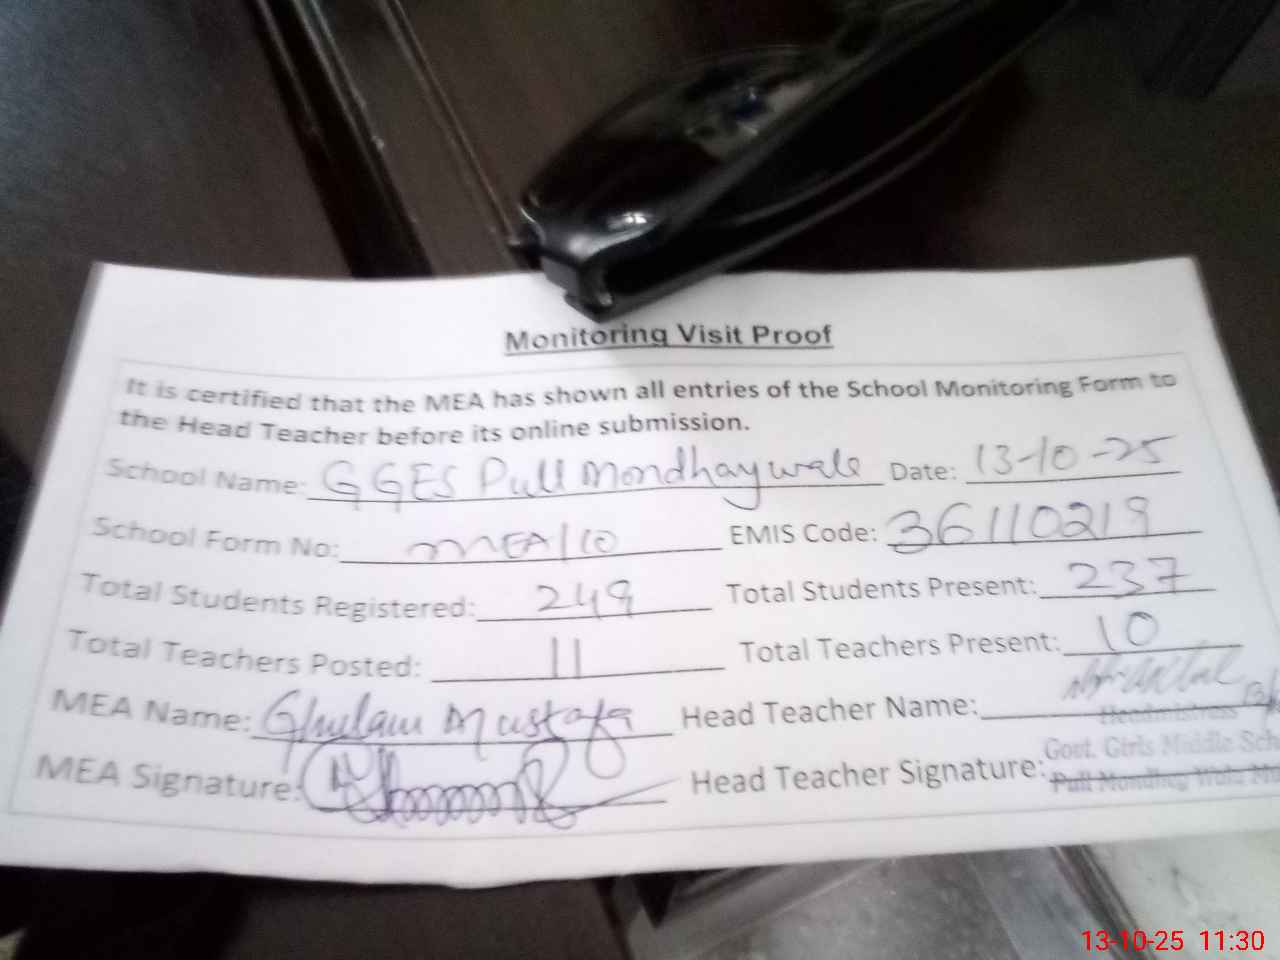 Monitoring Visit Proof
It is certified that the MEA has shown all entries of the School Monitoring Form to
the Head Teacher before its online submission.
School Name: GGES Pull Mondhaywala Date: 13-10-25
School Form No: MEA/10 EMIS Code: 36110219
Total Students Registered: 249 Total Students Present: 237
Total Teachers Posted: 11 Total Teachers Present: 10
MEA Name: Ghulam Mustafa Head Teacher Name:
Headmistress
MEA Signature: Head Teacher Signature: Govt. Girls Middle Sch
Pull Mondhey Wala
13-10-25 11:30